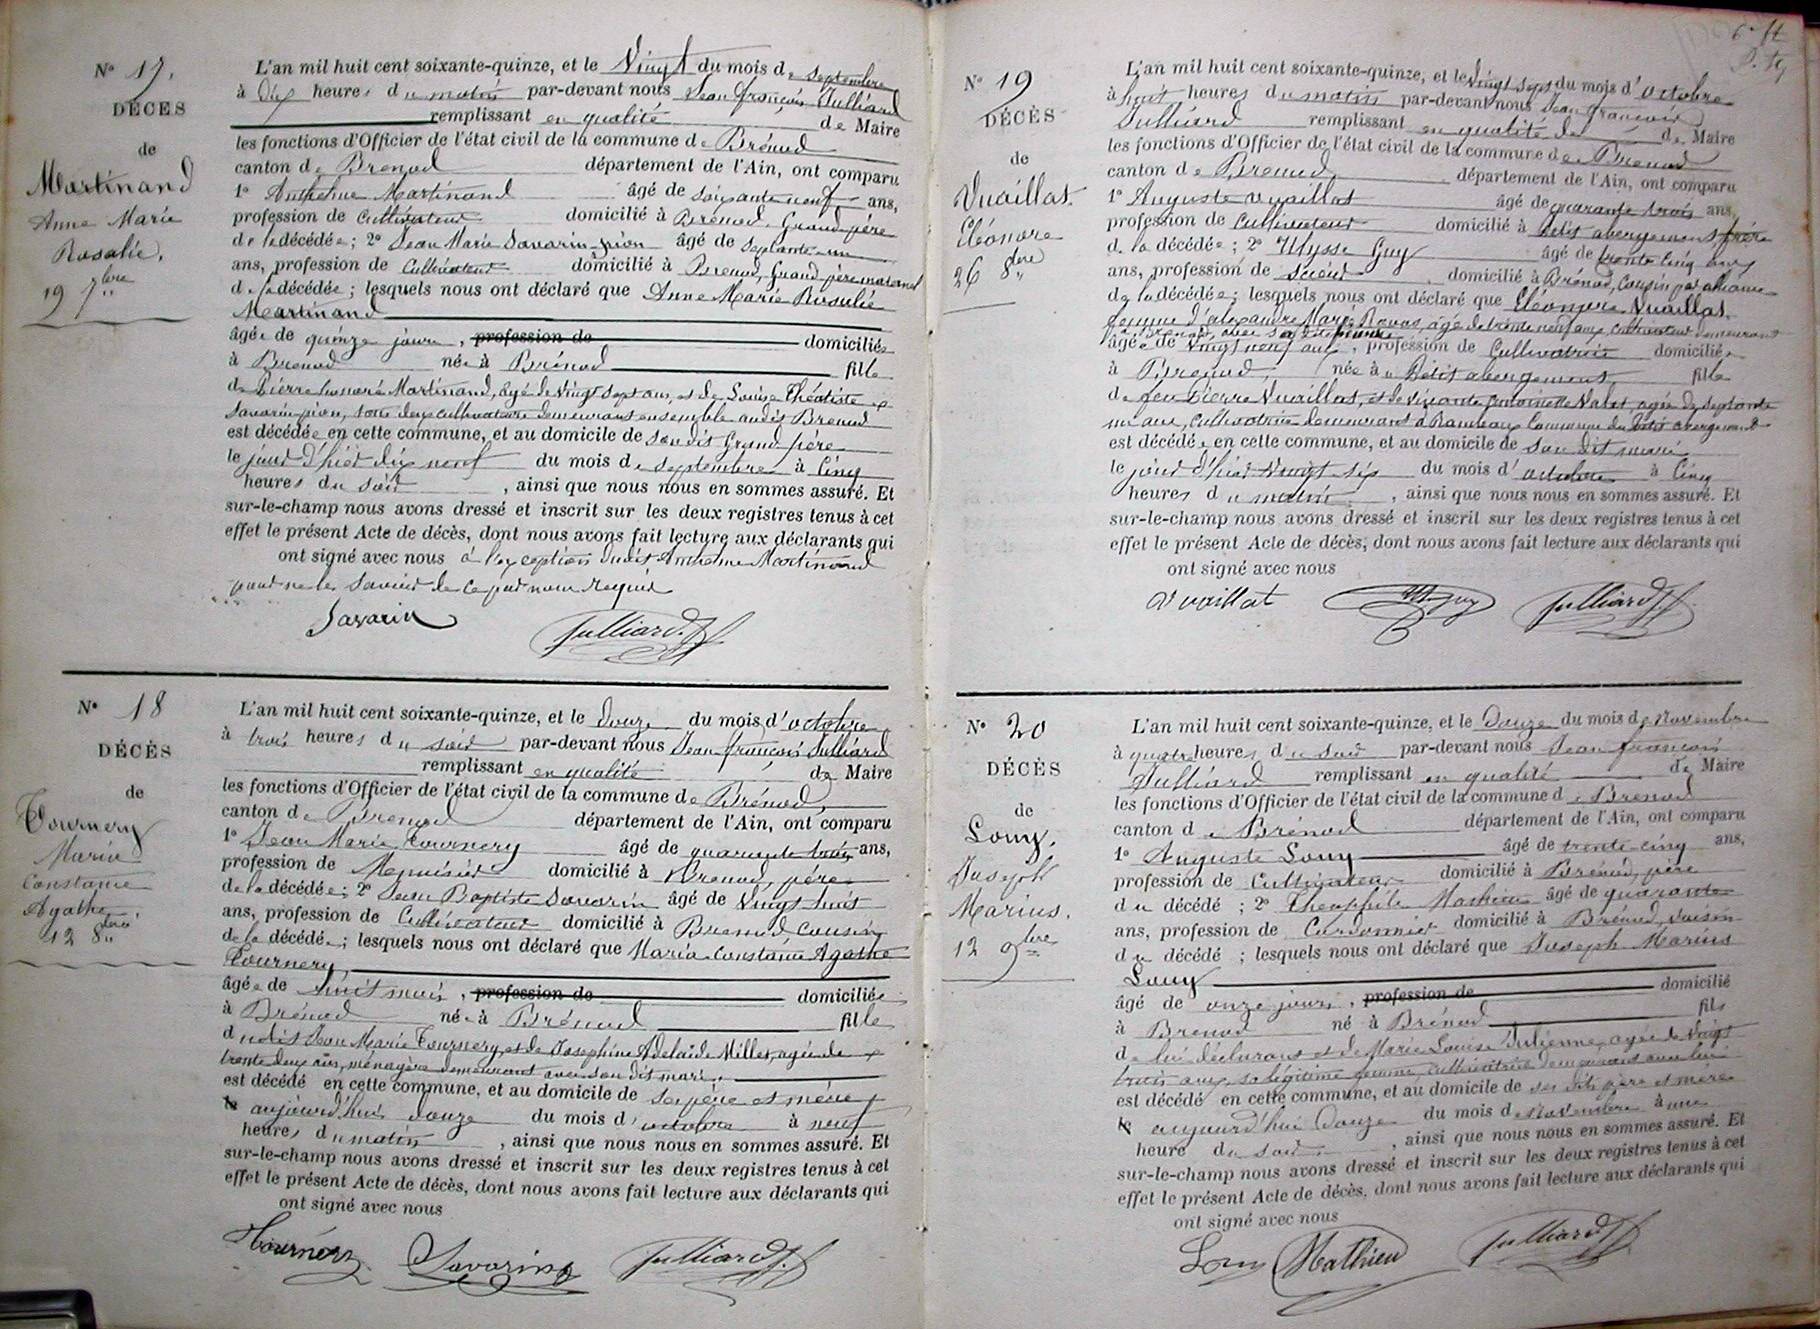 Nº 17.
DÉCÈS
de
Martinand
Anne Marie
Rosalie.
19 7bre
L'an mil huit cent soixante-quinze, et le Vingt du mois de septembre
à dix heures du matin par-devant nous Jean françois Julliard
remplissant en qualité de Maire
les fonctions d'Officier de l'état civil de la commune de Brénod
canton de Brenod département de l'Ain, ont comparu
1º Anthelme Martinand âgé de soixante neuf ans,
profession de Cultivateur domicilié à Brénod, Grand père
de la décédée ; 2º Jean Marie Savarin-pion âgé de septante-un
ans, profession de Cultivateur domicilié à Brenod, Grand père maternel
de la décédée ; lesquels nous ont déclaré que Anne Marie Rosalie
Martinand
âgée de quinze jours, profession de domiciliée
à Brenod née à Brénod fille
de Pierre honoré Martinand, agé de Vingt sept ans, et de Louise Théotiste
Savarin-pion, tous deux cultivateurs demeurant ensemble audit Brenod
est décédée en cette commune, et au domicile de son dit Grand père
le jour d'hier dix neuf du mois de septembre à Cinq
heures du soir, ainsi que nous nous en sommes assuré. Et
sur-le-champ nous avons dressé et inscrit sur les deux registres tenus à cet
effet le présent Acte de décès, dont nous avons fait lecture aux déclarants qui
ont signé avec nous à l'exception dudit Anthelme Martinand
pour ne le savoir de ce par nous requis
Savarin Julliard.f
Nº 18
DÉCÈS
de
Tournery
Maria
Constance
Agathe
12 8bre
L'an mil huit cent soixante-quinze, et le douze du mois d'octobre
à trois heures du soir par-devant nous Jean françois Julliard
remplissant en qualité de Maire
les fonctions d'Officier de l'état civil de la commune de Brénod,
canton de Brenod département de l'Ain, ont comparu
1º Jean Marie Tournery âgé de quarante trois ans,
profession de Menuisier domicilié à Brenod, père
de la décédée ; 2º Jean Baptiste Savarin âgé de Vingt huit
ans, profession de Cultivateur domicilié à Brenod cousin
de la décédée ; lesquels nous ont déclaré que Maria Constance Agathe
Tournery,
âgée de huit mois, profession de domiciliée
à Brénod née à Brénod fille
dudit Jean Marie Tournery, et de Josephine Adelaïde Millet, agée de
trente deux ans, ménagère demeurant avec son dit mari.
est décédé en cette commune, et au domicile de ses père et mère
le aujourd'hui douze du mois d'octobre à neuf
heures du matin, ainsi que nous nous en sommes assuré. Et
sur-le-champ nous avons dressé et inscrit sur les deux registres tenus à cet
effet le présent Acte de décès, dont nous avons fait lecture aux déclarants qui
ont signé avec nous
Tournery Savarin Julliard.f
Nº 19
DÉCÈS
de
Vuaillat.
Eléonore
26 8bre
L'an mil huit cent soixante-quinze, et le Vingt sept du mois d'octobre
à huit heures du matin par-devant nous Jean françois
Julliard remplissant en qualité de de Maire
les fonctions d'Officier de l'état civil de la commune de Brenod
canton de Brenod département de l'Ain, ont comparu
1º Auguste Vuaillat âgé de quarante trois ans,
profession de Cultivateur domicilié à Petit abergement frère
de la décédée ; 2º Ulysse Guy âgé de trente Cinq ans
ans, profession de domicilié à Brénod, Cousin par alliance
de la décédée ; lesquels nous ont déclaré que Eléonore Vuaillat.
femme d'alexandre Marie Ravat, âgé de trente neuf ans, cultivateur demeurant
à Brenod avec sa
âgée de Vingt neuf ans, profession de Cultivatrice domiciliée
à Brenod, née à Petit abergement, fille
de feu Pierre Vuaillat, et de vivante antoinette agée de septante
un ans, Cultivatrice demeurant à Commune du Petit abergement
est décédée en cette commune, et au domicile de son dit mari
le jour d'hier Vingt six du mois d'octobre à Cinq
heures du matin, ainsi que nous nous en sommes assuré. Et
sur-le-champ nous avons dressé et inscrit sur les deux registres tenus à cet
effet le présent Acte de décès, dont nous avons fait lecture aux déclarants qui
ont signé avec nous
Vuaillat U. guy Julliard.f
Nº 20
DÉCÈS
de
Louy,
Joseph
Marius.
12 9bre
L'an mil huit cent soixante-quinze, et le Douze du mois de Novembre
à quatre heures du soir par-devant nous Jean françois
Julliard remplissant en qualité de Maire
les fonctions d'Officier de l'état civil de la commune de Brenod
canton de Brénod département de l'Ain, ont comparu
1º Auguste Louy âgé de trente-cinq ans,
profession de Cultivateur domicilié à Brénod, père
du décédé ; 2º Théophile Mathieu âgé de quarante
ans, profession de Cordonnier domicilié à Brénod, voisin
du décédé ; lesquels nous ont déclaré que Joseph Marius
Louy
âgé de onze jours, profession de domicilié
à Brenod né à Brénod fils
de lui déclarant et de Marie Louise Julienne agée de Vingt
trois ans, sa légitime femme, cultivatrice demeurant avec lui
est décédé en cette commune, et au domicile de ses dits père et mère
le aujourd'hui Douze du mois de Novembre à une
heure du soir, ainsi que nous nous en sommes assuré. Et
sur-le-champ nous avons dressé et inscrit sur les deux registres tenus à cet
effet le présent Acte de décès, dont nous avons fait lecture aux déclarants qui
ont signé avec nous
Louy Mathieu Julliard.f